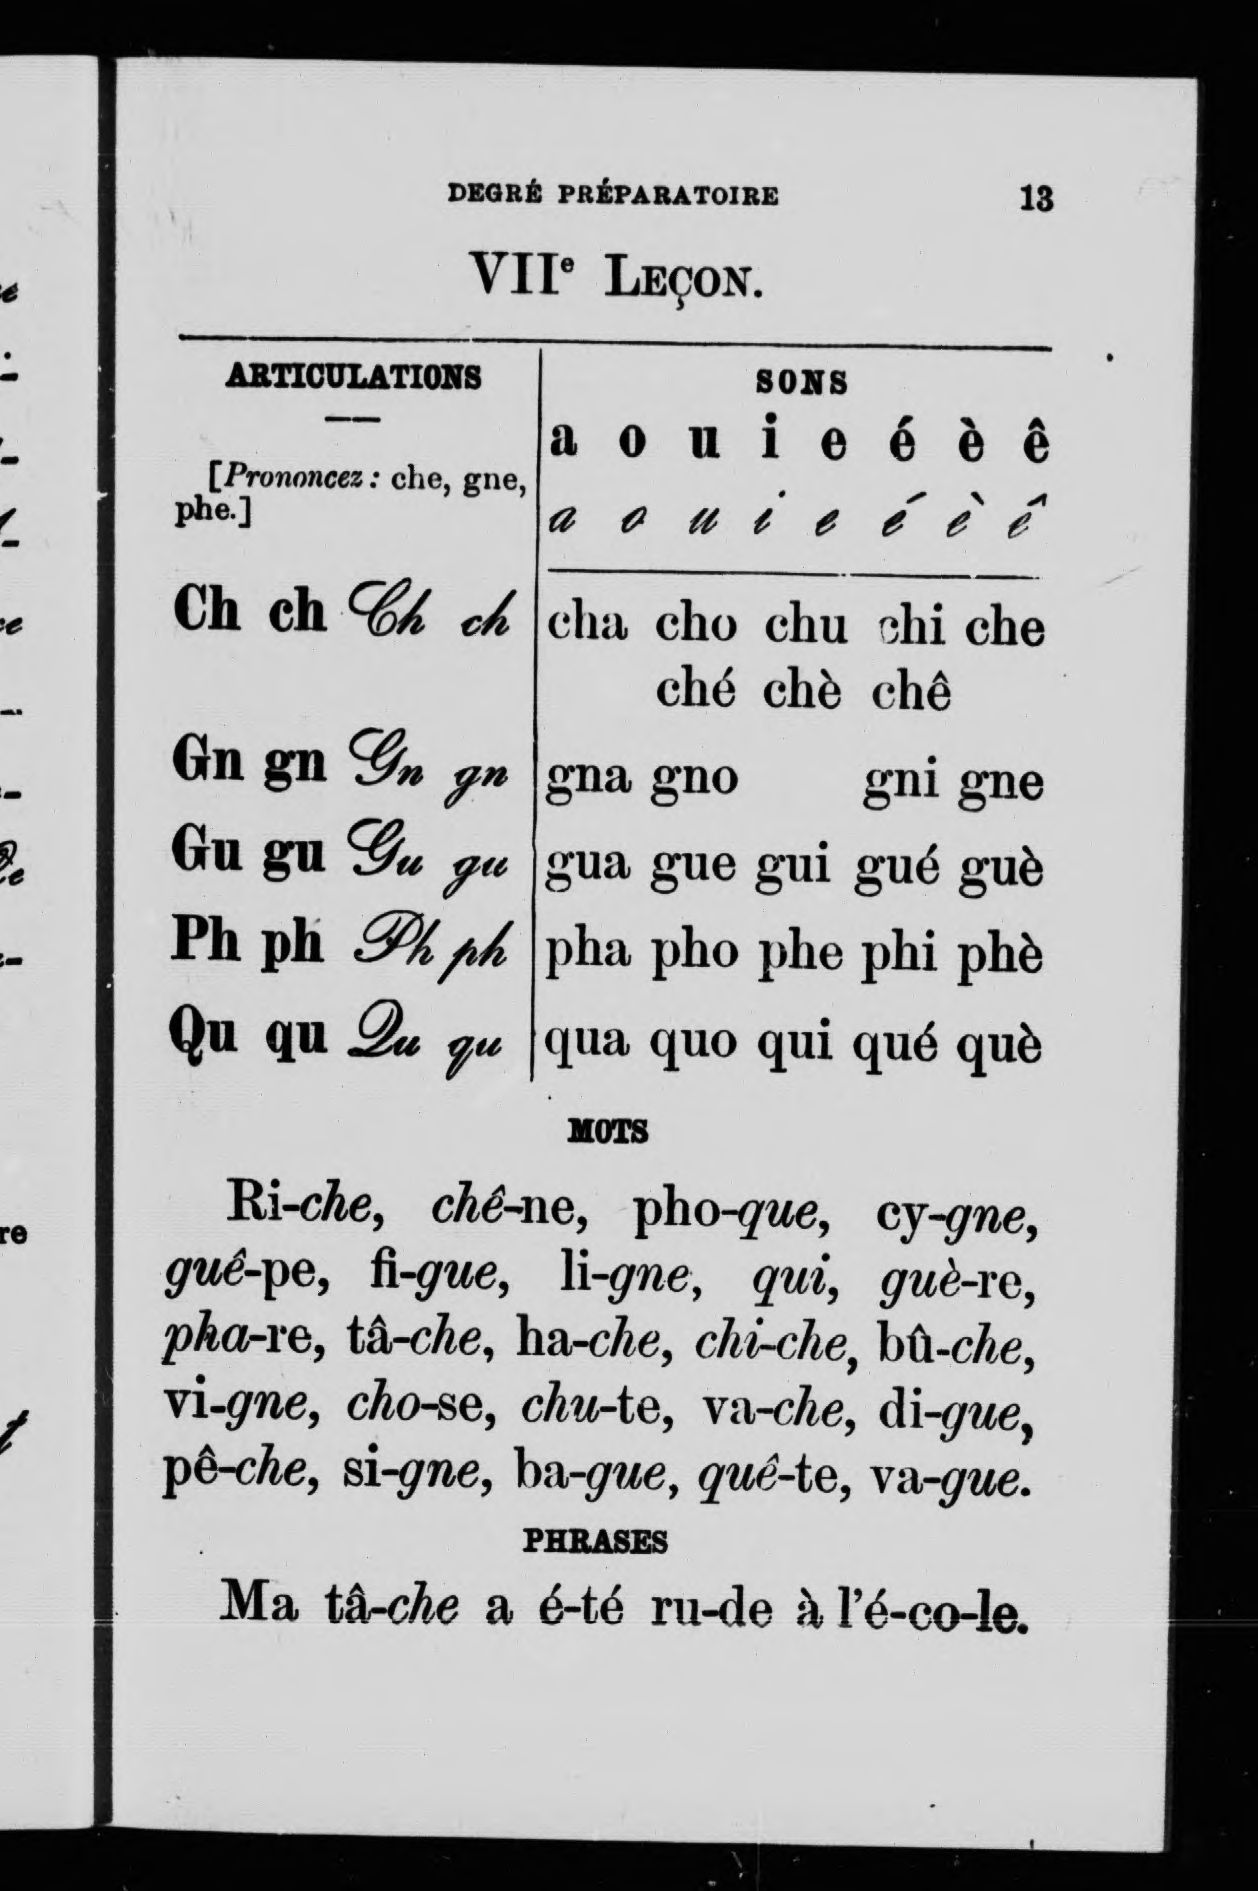 DEGRÉ PRÉPARATOIRE 13
VIIe LEÇON.
ARTICULATIONS
[Prononcez : che, gne,
phe.]
SONS
a o u i e é è ê
a o u i e é è ê
Ch ch Ch ch cha cho chu chi che
ché chè chê
Gn gn Gn gn gna gno gni gne
Gu gu Gu gu gua gue gui gué guè
Ph ph Ph ph pha pho phe phi phè
Qu qu Qu qu qua quo qui qué què
MOTS
Ri-che, chê-ne, pho-que, cy-gne,
guê-pe, fi-gue, li-gne, qui, guè-re,
pha-re, tâ-che, ha-che, chi-che, bû-che,
vi-gne, cho-se, chu-te, va-che, di-gue,
pê-che, si-gne, ba-gue, quê-te, va-gue.
PHRASES
Ma tâ-che a é-té ru-de à l'é-co-le.